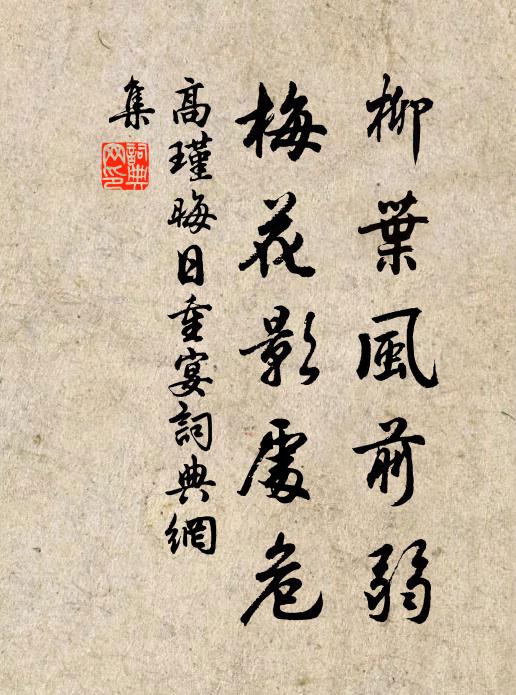 柳葉風前弱
梅花影處危
高瑾晦日重宴詞典網
集
詞典網印